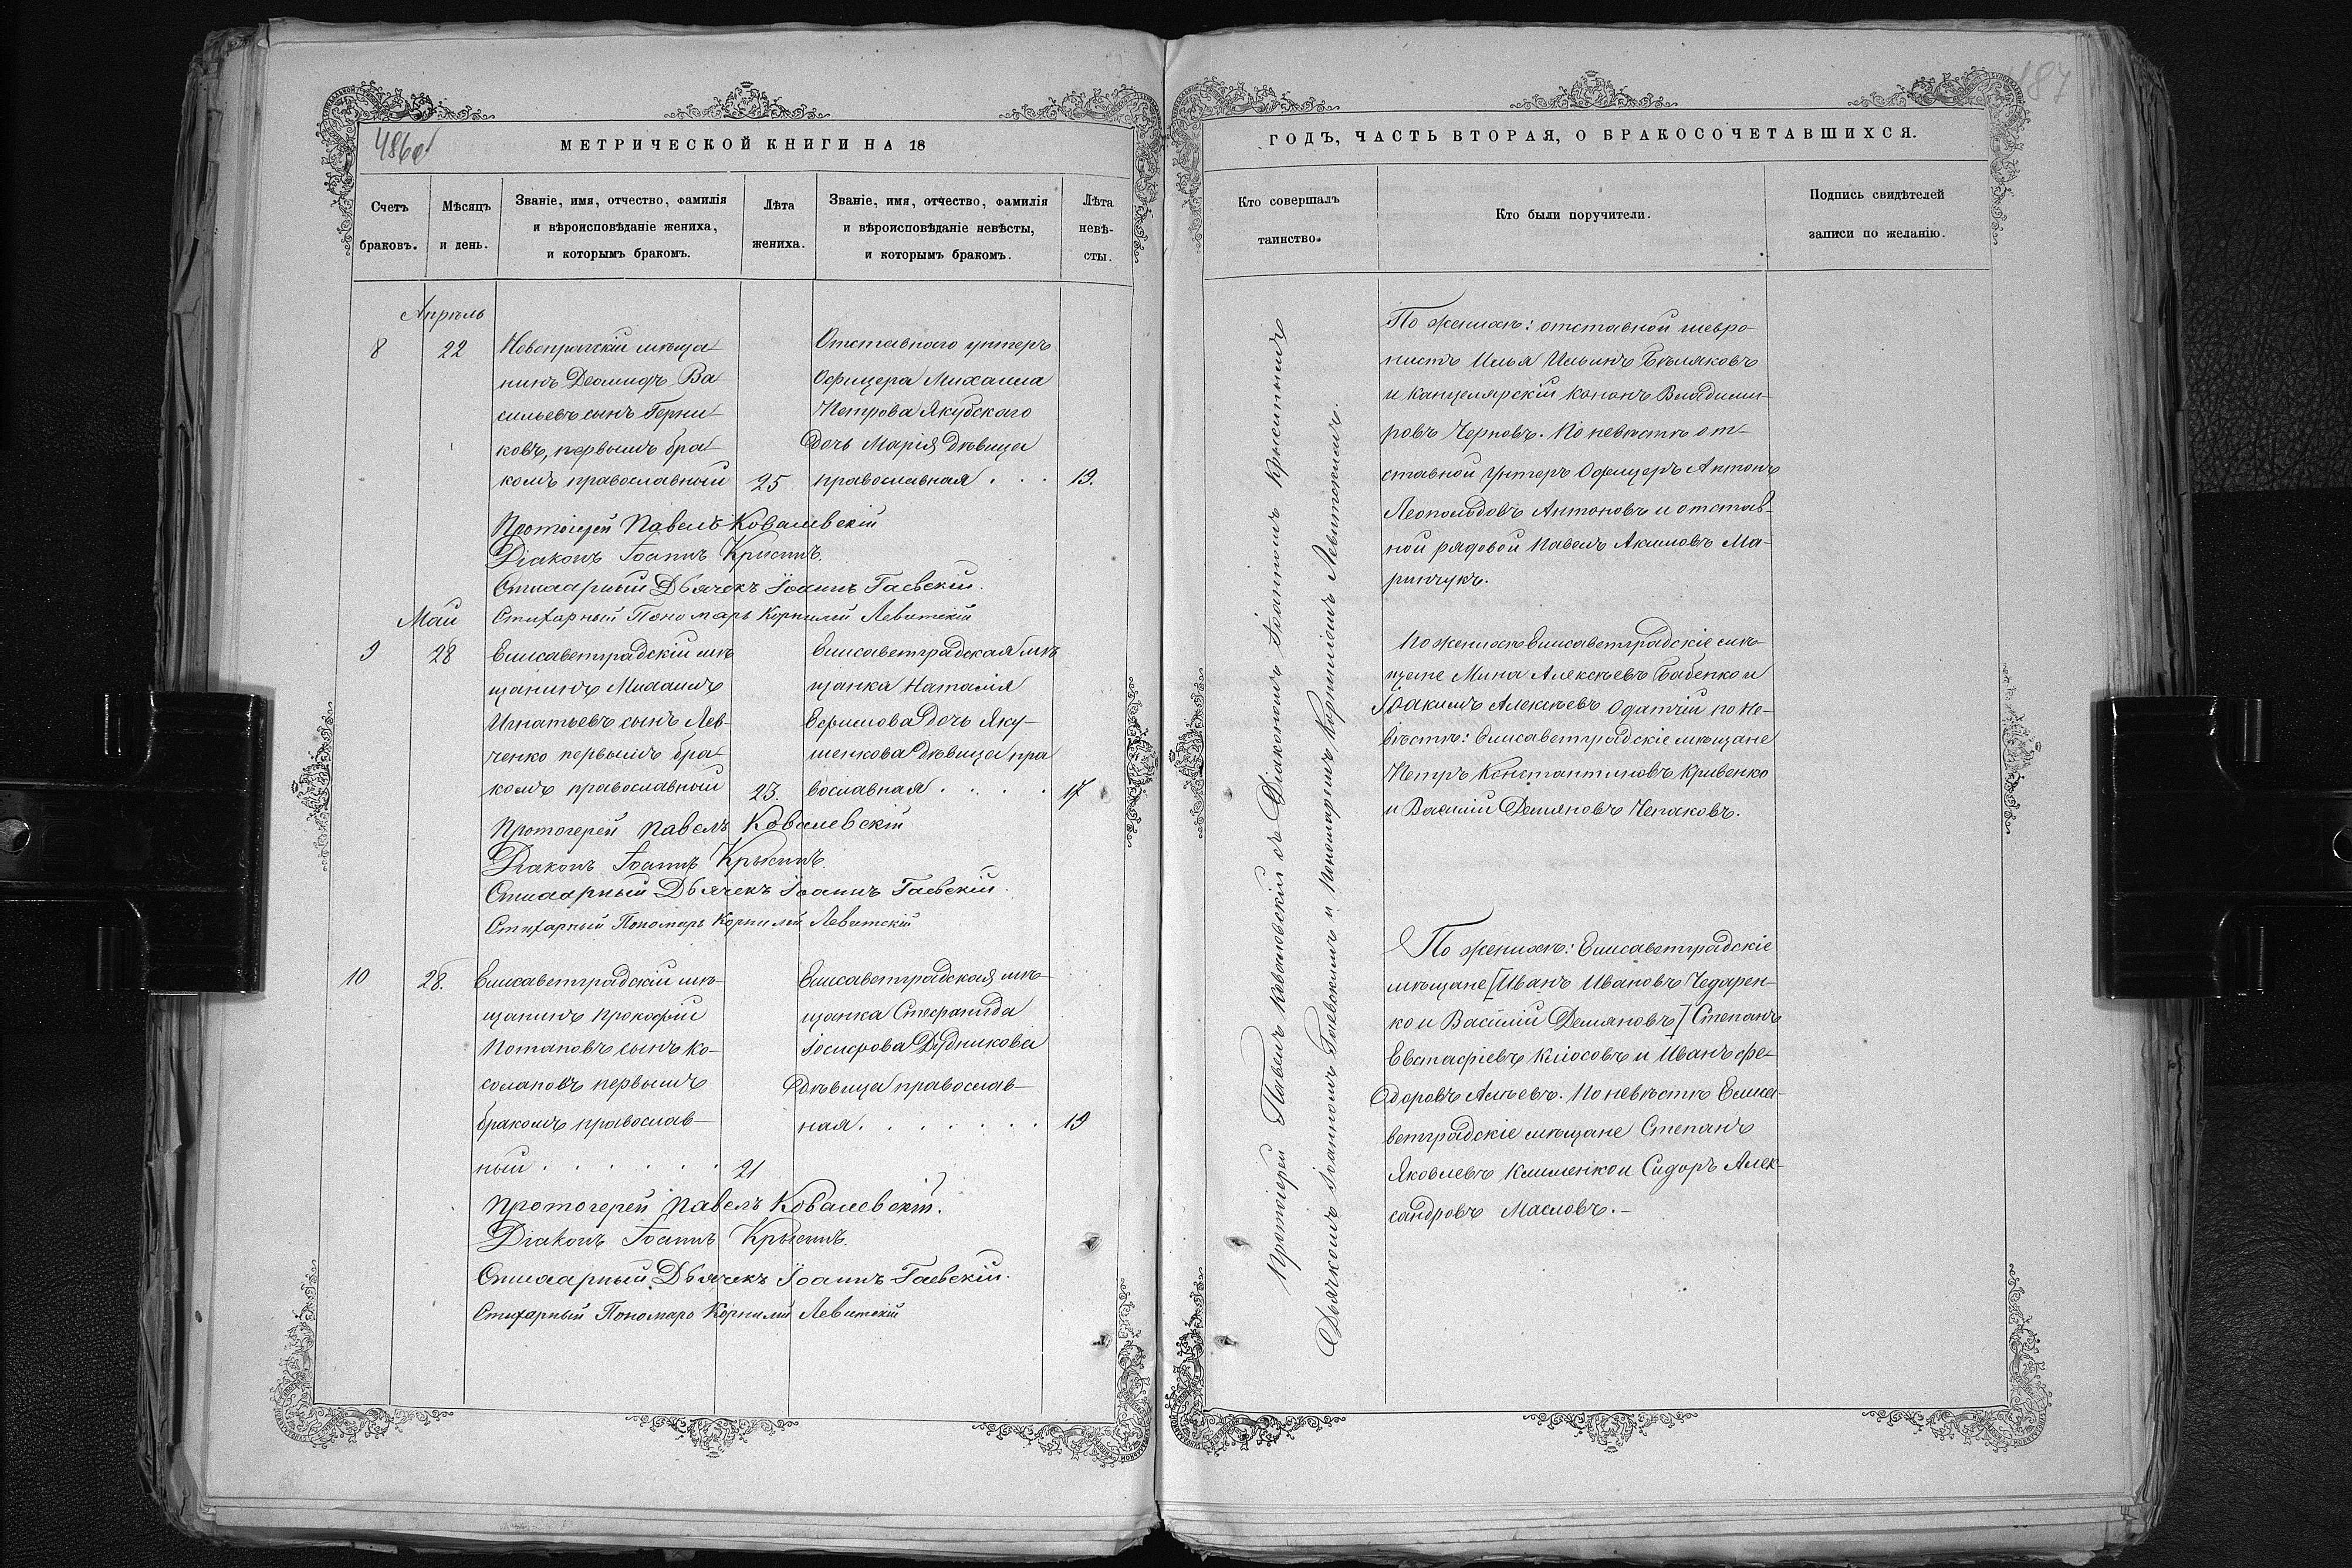 486об
МЕТРИЧЕСКОЙ КНИГИ НА 18
Счетъ
браковъ.
Мѣсяцъ
и день.
Званіе, имя, отчество, фамилія
и вѣроисповѣданіе жениха,
и которымъ бракомъ.
Лѣта
жениха.
Званіе, имя, отчество, фамилія
и вѣроисповѣданіе невѣсты,
и которымъ бракомъ.
Лѣта
невѣ-
сты.
Апрѣль
8
22
Новопражскій мѣща
нинъ Деомидъ Ва
сильевъ сынъ Герни
ковъ, первымъ бра
комъ православный
25
Отставного унтеръ
Офицера Михаила
Петрова Якубского
дочь Марія дѣвица
православная . . .
19.
Протоіерей Павелъ Ковалевскій
Діаконъ Іоаннъ Крысинъ.
Стихарный Дьячекъ Іоаннъ Гаевскій.
Стихарный Пономарь Корнилій Левитскій
Май
9
28
Елисаветградскій мѣ
щанинъ Михаилъ
Игнатьевъ сынъ Лев-
ченко первымъ бра
комъ православный
23.
Елисаветградская мѣ
щанка Наталія
Ефимова дочь Яку-
шенкова дѣвица пра
вославная . . . .
17
Протоіерей Павелъ Ковалевскій
Діаконъ Іоаннъ Крысинъ.
Стихарный Дьячекъ Іоаннъ Гаевскій.
Стихарный Пономарь Корнилій Левитскій
10
28.
Елисаветградскій мѣ-
щанинъ Прокофій
Потаповъ сынъ Ко-
солаповъ первымъ
бракомъ православ-
ный . . . . . .
21
Елисаветградская мѣ-
щанка Стефанида
Іосифова Дудникова
дѣвица православ-
ная . . . . . . .
19
Протоіерей Павелъ Ковалевскій.
Діаконъ Іоаннъ Крысинъ.
Стихарный Дьячекъ Іоаннъ Гаевскій.
Стихарный Пономарь Корнилій Левитскій
487
ГОДЪ, ЧАСТЬ ВТОРАЯ, О БРАКОСОЧЕТАВШИХСЯ.
Кто совершалъ
таинство.
Кто были поручители.
Подпись свидѣтелей
записи по желанію.
Протоіерей Павелъ Ковалевскій съ Діакономъ Іоанномъ Крысинымъ
Дьячкомъ Іоанномъ Гаевскимъ и Пономаремъ Корниліемъ Левитскимъ.
По женихѣ: отставной шевро-
нистъ Илья Ильинъ Бѣляковъ
и канцелярскій Кононъ Владими-
ровъ Черновъ. По невѣстѣ от-
ставной Унтеръ Офицеръ Антонъ
Леопольдовъ Антоновъ и отстав-
ной рядовой Павелъ Акимовъ Ма-
ринчукъ.
По женихѣ Елисаветградскіе мѣ-
щане Мина Алексѣевъ Бабенко и
Іоакимъ Алексѣевъ по не-
вѣстѣ: Елисаветградскіе мѣщане
Петръ Константиновъ Кривенко
и Василій Демяновъ Чепаковъ.
По женихѣ: Елисаветградскіе
мѣщане [Иванъ Ивановъ Чедарен-
ко и Василій Демяновъ] Степанъ
Евстафіевъ Клюсовъ и Иванъ Фе-
доровъ Алѣевъ. По невѣстѣ Елиса-
ветградскіе мѣщане Степанъ
Яковлевъ Клименко и Сидоръ Алек-
сандровъ Масловъ.-